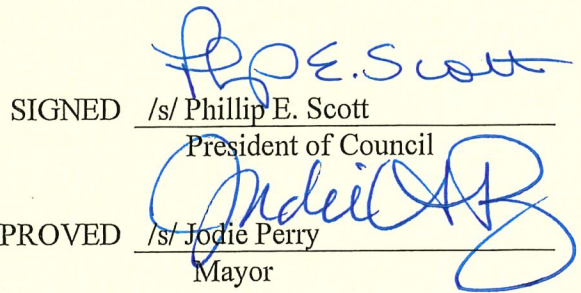 Phlp E. Scott
SIGNED /s/ Phillip E. Scott
President of Council
PROVED /s/ Jodie Perry
Mayor